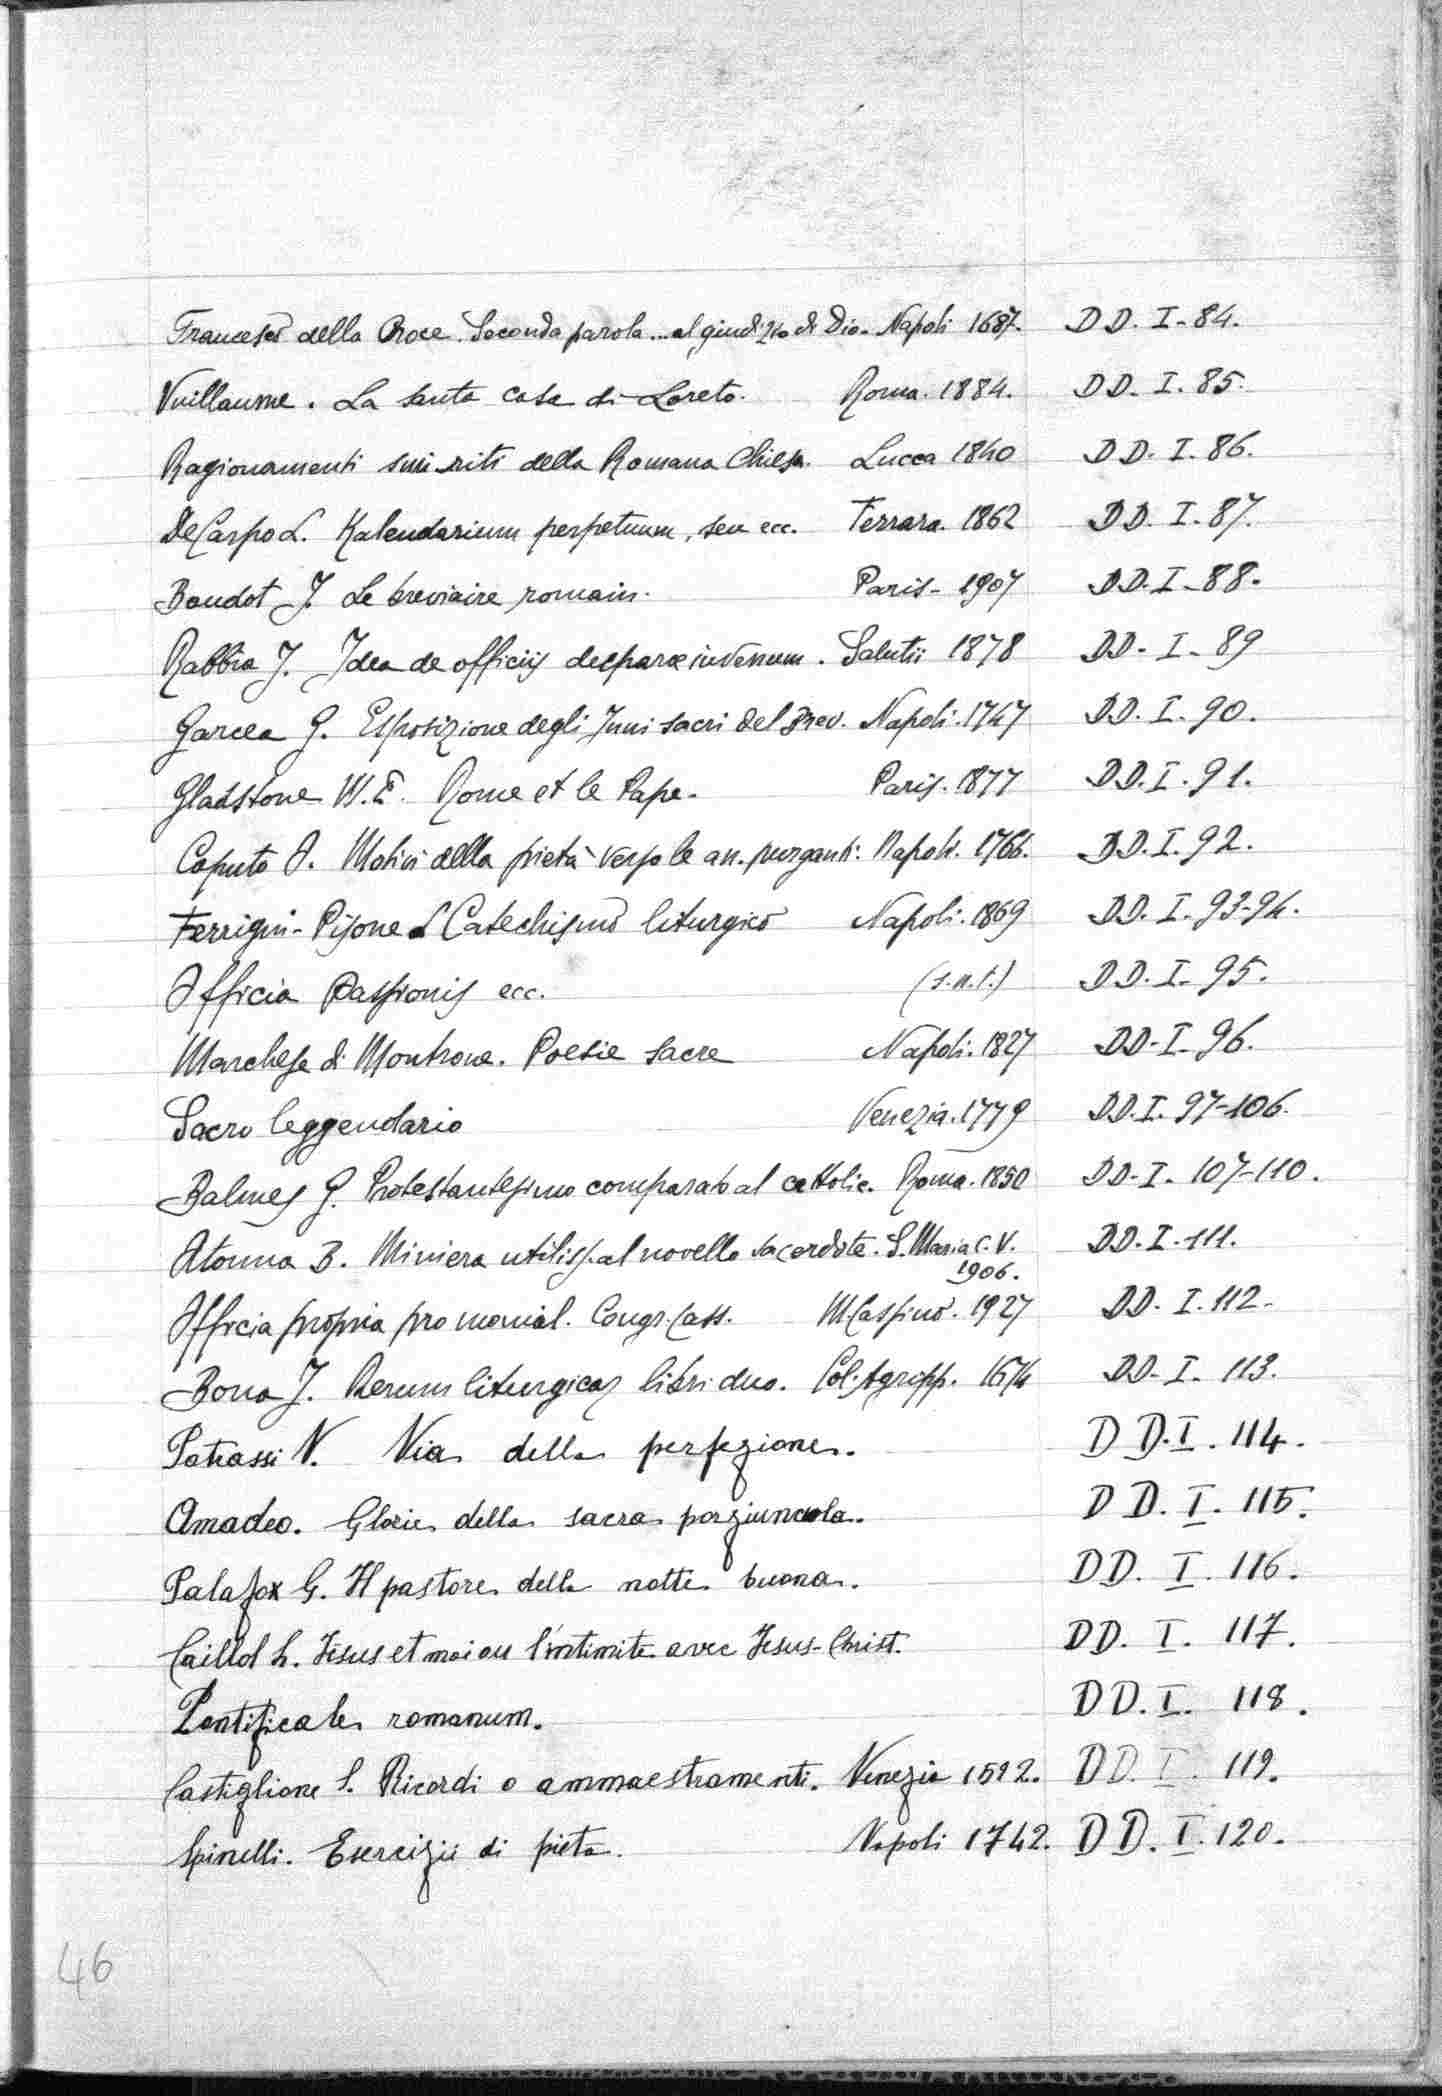 Francesco della Croce. Seconda parola... al giudizio di Dio. Napoli 1687. DD. I-84.
Vuillaume. La santa casa di Loreto. Roma. 1884. DD. I. 85.
Ragionamenti sui riti della Romana Chiesa. Lucca 1840 DD. I. 86.
De Carpo L. Kalendarium perpetuum, seu ecc. Ferrara. 1862 DD. I. 87.
Baudot J. Le breviaire romain. Paris - 1907 DD. I-88.
Rabbia J. Idea de officiis deiparae iuvenum. Salutii 1878 DD. I-89
Garcea G. Esposizione degli Inni sacri del Brev. Napoli. 1747 DD. I. 90.
Gladstone W. E. Rome et le Pape. Paris. 1877 DD. I. 91.
Caputo A. Motivi della pietà verso le an. purganti. Napoli. 1766. DD. I. 92.
Ferrigni-Pisone L Catechismo liturgico Napoli. 1869 DD. I. 93-94.
Officia Passionis ecc. (s.n.t.) DD. I. 95.
Marchese di Montrone. Poesie sacre Napoli. 1827 DD. I. 96.
Sacro leggendario Venezia. 1779 DD. I. 97-106.
Balmes G. Protestantesimo comparato al cattolic. Roma. 1850 DD. I. 107-110.
Atonna B. Miniera utiliss. al novello sacerdote. S. Maria C. V. DD. I. 111.
1906.
Officia propria pro monial. Congr. Cass. M. Cassino. 1927 DD. I. 112.
Bona J. Rerum liturgicar libri duo. Col. Agripp. 1674 DD. I. 113.
Patrassi N. Via della perfezione. DD. I. 114.
Amadeo. Glorie della sacra porziuncola. DD. I. 115.
Palafox G. Il pastore della notte buona. DD. I. 116.
Caillol h. Jésus et moi ou l'intimité avec Jesus-Christ. DD. I. 117.
Pontificale romanum. DD. I. 118.
Castiglione S. Ricordi o ammaestramenti. Venezia 1592. DD. I. 119.
Spinelli. Esercizii di pietà. Napoli 1742. DD. I. 120.
46